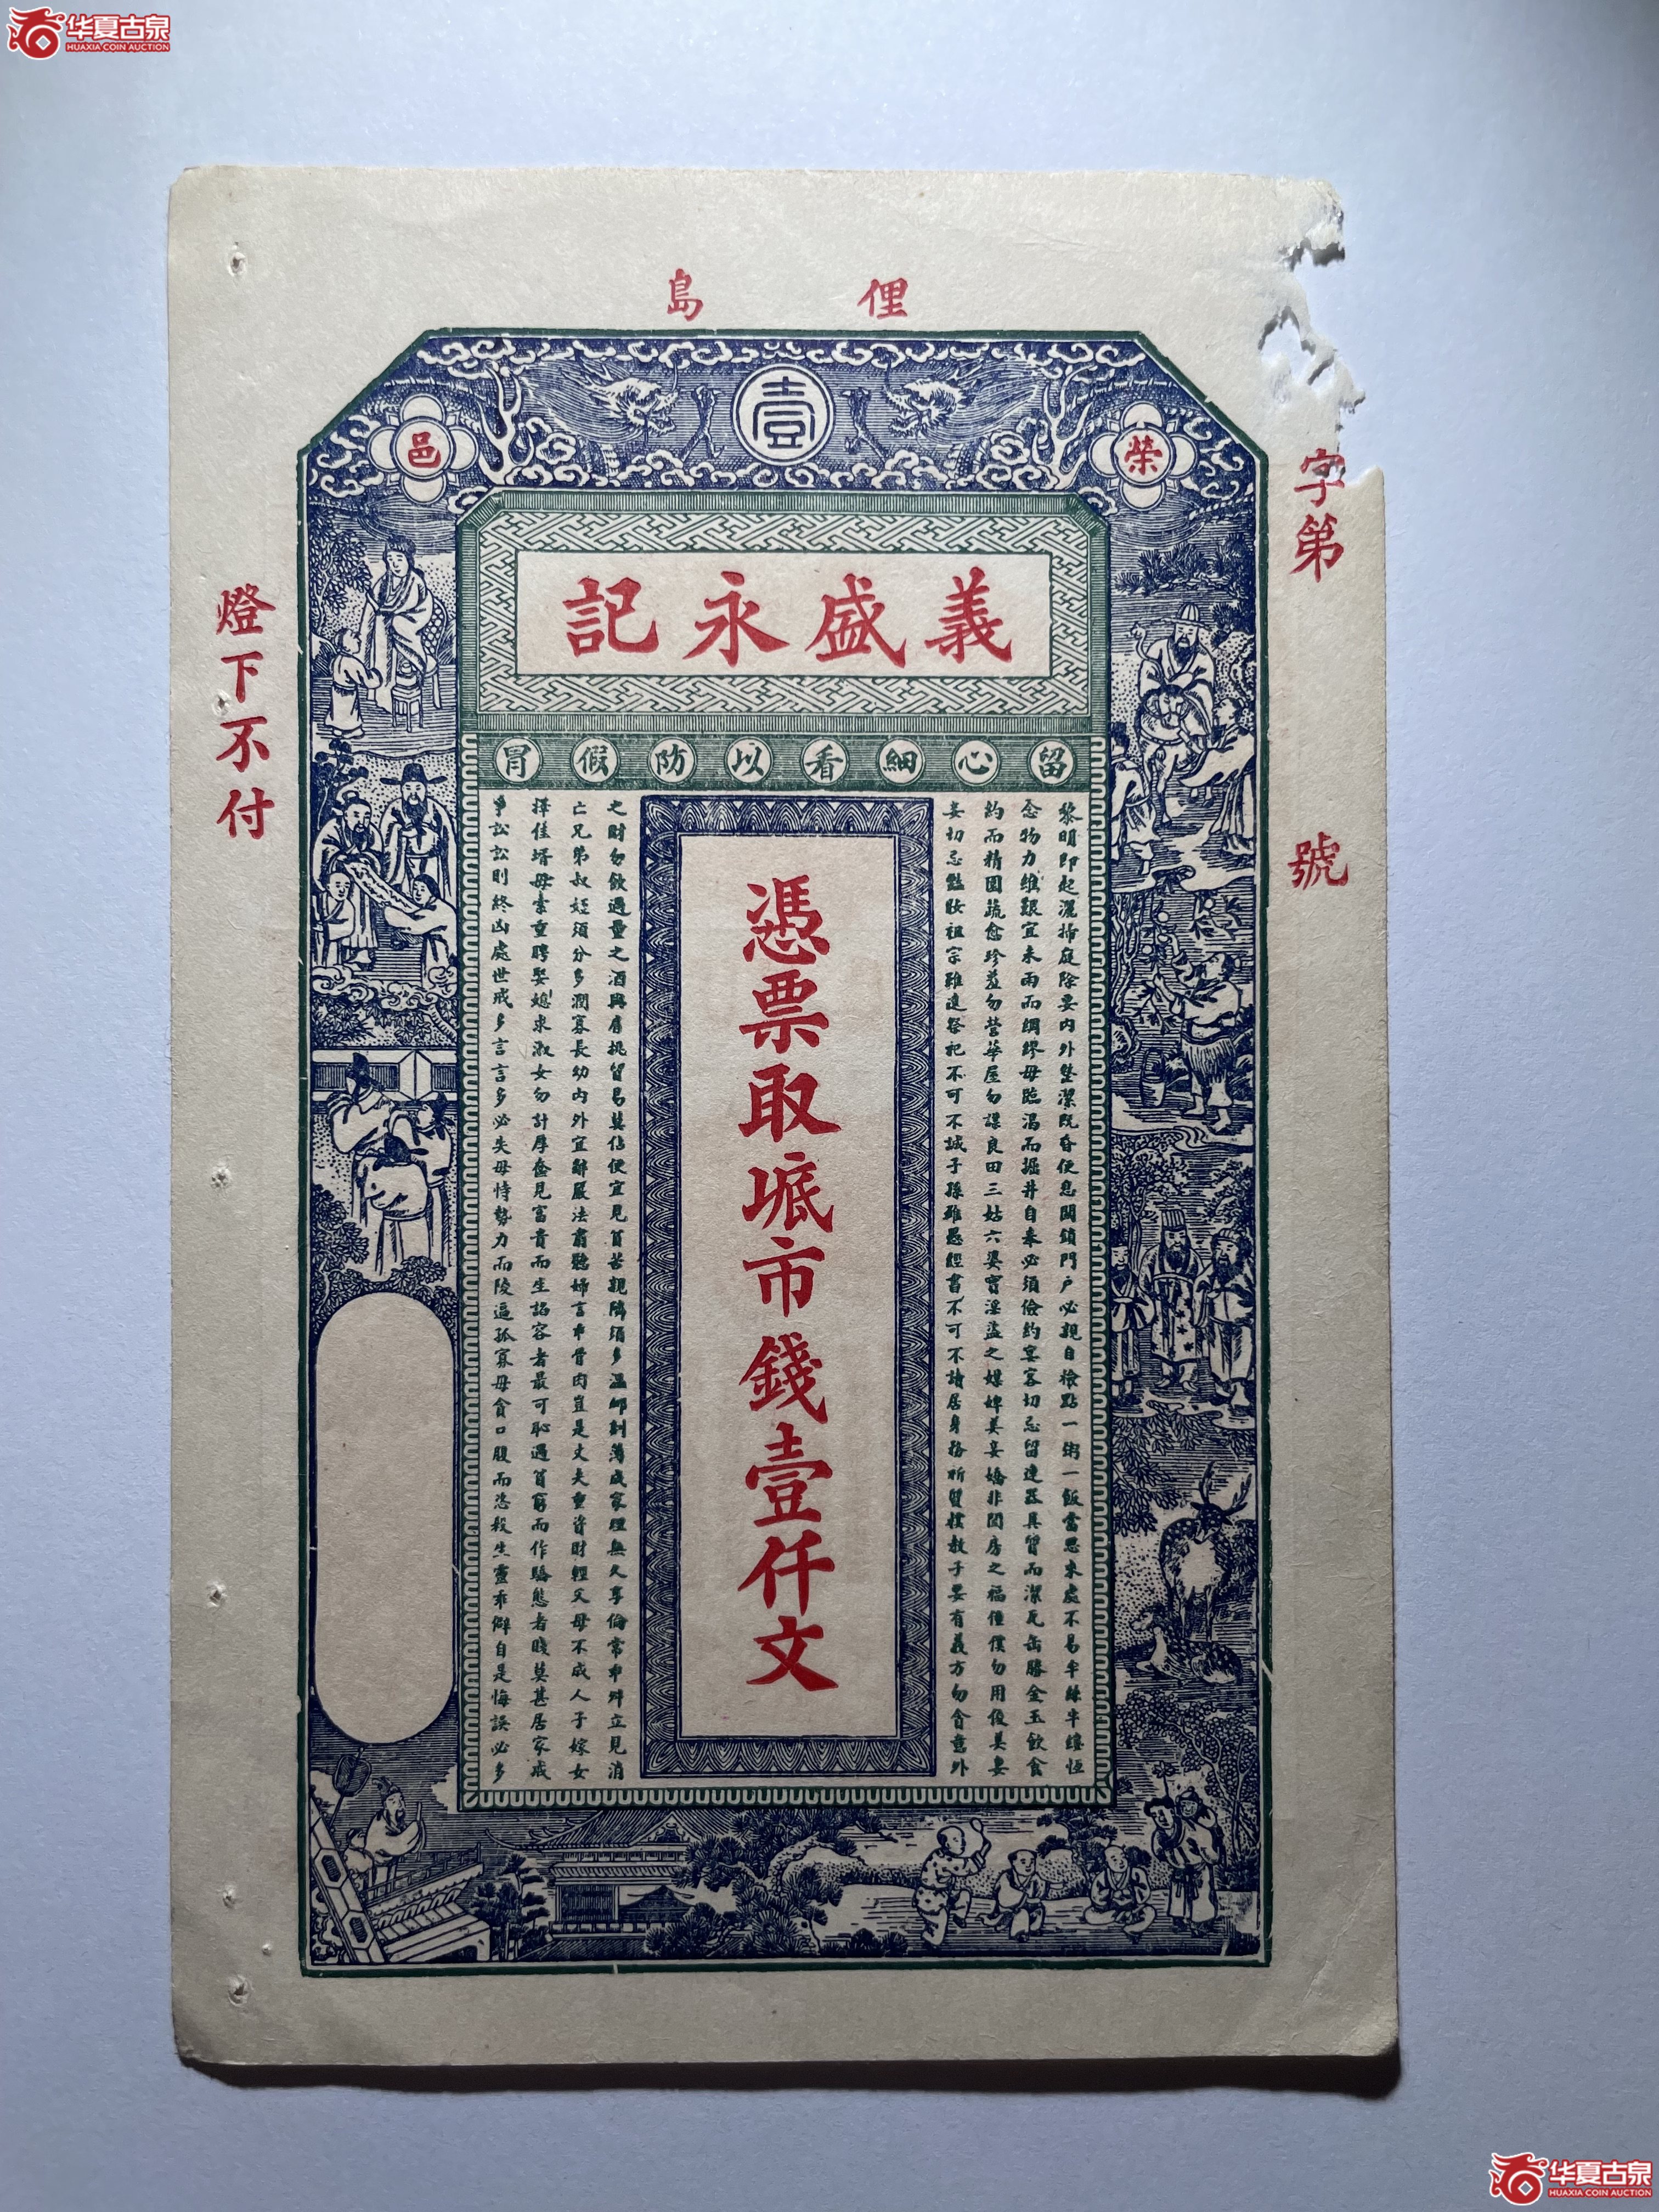 华夏古泉
HUAXIA COIN AUCTION
俚島
壹
榮邑
義盛永記
留心細看以防假冒
字第 號
黎明即起灑掃庭除要内外整潔既昏便息関鎖門户必親自檢點一粥一飯當思來處不易半絲半縷恒
念物力維艱宜未雨而綢繆毋臨渴而掘井自奉必須儉約宴客切忌留連器具質而潔瓦缶勝金玉飲食
約而精園蔬愈珍羞勿營華屋勿謀良田三姑六婆實淫盜之媒婢美妾嬌非閨房之福僮僕勿用俊美妻
妾切忌豔妝祖宗雖遠祭祀不可不誠子孫雖愚經書不可不讀居身務祈質樸教子要有義方勿貪意外
憑票取底市錢壹仟文
之財勿飲過量之酒與肩挑貿易莫佔便宜見貧苦親鄰須多溫卹刻薄成家理無久享倫常乖舛立見消
亡兄弟叔姪須分多潤寡長幼内外宜辭嚴法肅聽婦言乖骨肉豈是丈夫重資財輕父母不成人子嫁女
擇佳壻毋索重聘娶媳求淑女勿計厚奩見富貴而生諂容者最可恥遇貧窮而作驕態者賤莫甚居家戒
爭訟訟則終凶處世戒多言言多必失毋恃勢力而陵逼孤寡毋貪口腹而恣殺生靈乖僻自是悔誤必多
燈下不付
华夏古泉
HUAXIA COIN AUCTION